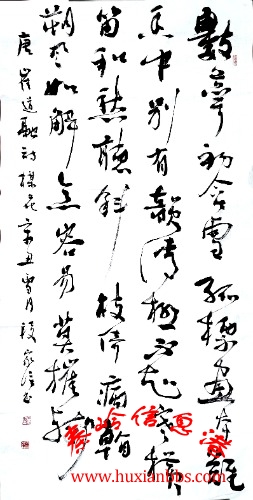 數萼初含雪孤標畫本難
香中別有韻清極不知寒橫
笛和愁聽斜枝倚病看
朔風如解意容易莫摧殘
唐崔道融詩梅花辛丑雪月段家書
www.huxianbbs.com